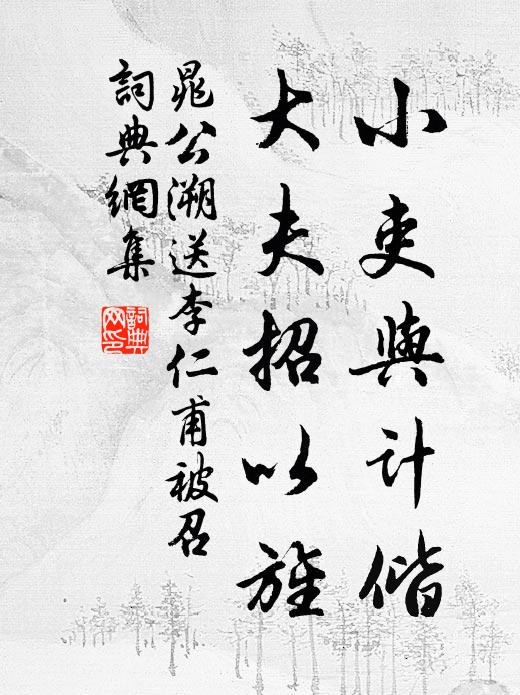 小吏與計偕
大夫招以旌
晁公溯送李仁甫被召
詞典網集
詞典網印